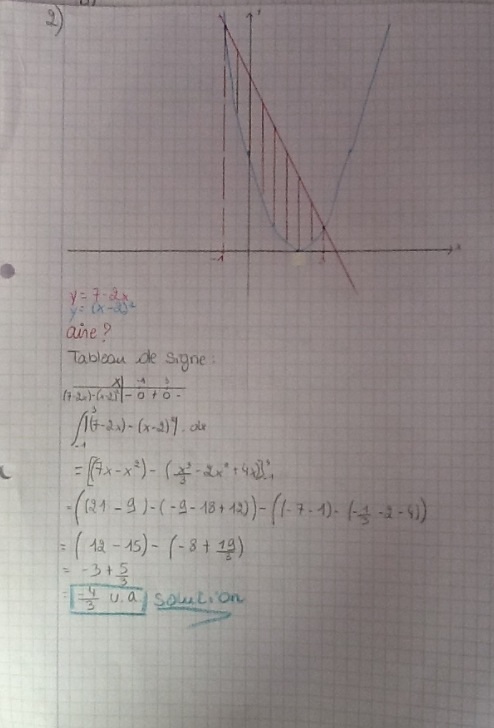 2)
-1
3
x
y = 7-2x
y = (x-2)²
aire ?
Tableau de signe :
x | -1 3
(7-2x)-(x-2)² | - 0 + 0 -
∫₋₁³ |(7-2x) - (x-2)²| . dx
= [(7x-x²) - (x³/3 - 2x² + 4x)]³₋₁
= ((21 - 9) - (-9 - 18 + 12)) - ((-7-1) - (-1/3 - 2 - 4))
= (12 - 15) - (-8 + 19/3)
= -3 + 5/3
= -4/3 u.a solution